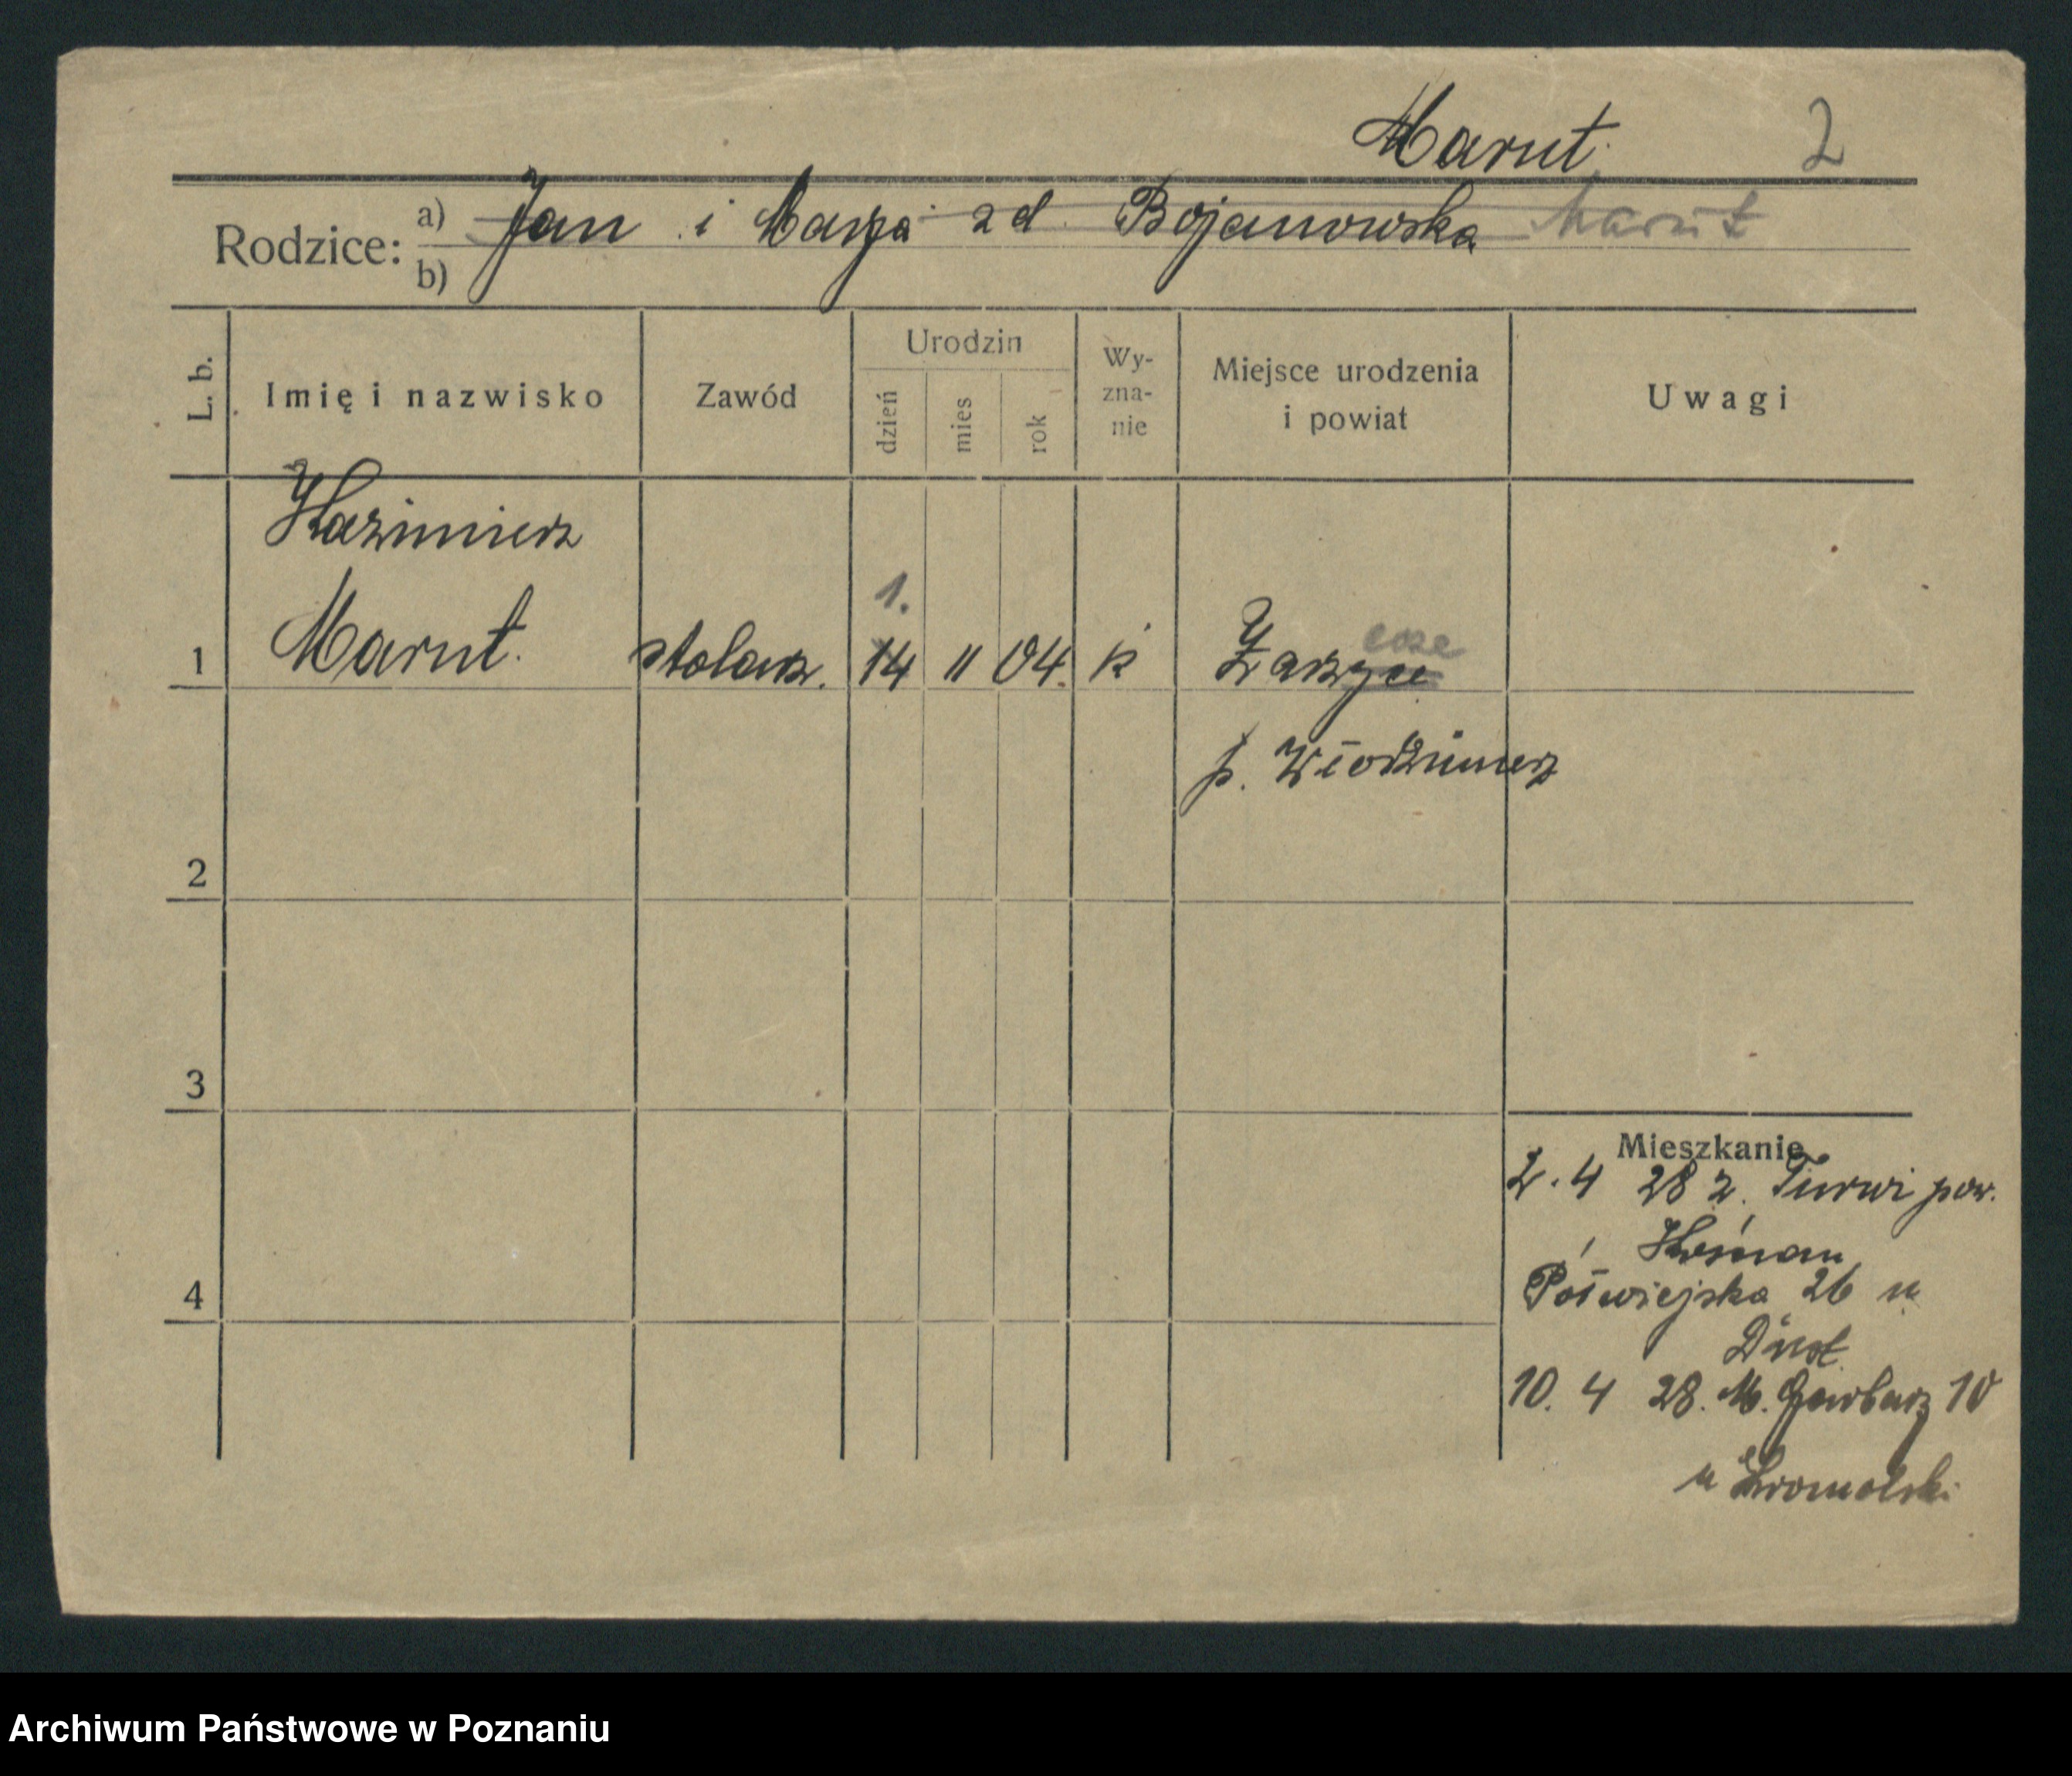 Marut. 2
Rodzice: a) Jan i Marja zd Bojanowska Marut
b)
L. b. Imię i nazwisko Zawód Urodzin dzień mies rok Wy-zna-nie Miejsce urodzenia i powiat Uwagi
Kazimierz
1.
1 Marut. stolarz. 14 11 04. k
p. Włodzimierz
2
3
Mieszkanie
2. 4 28 z. Turwi pow.
Kościan
4
Półwiejska 26 u
10. 4 28. M. Garbary 10
u
Archiwum Państwowe w Poznaniu